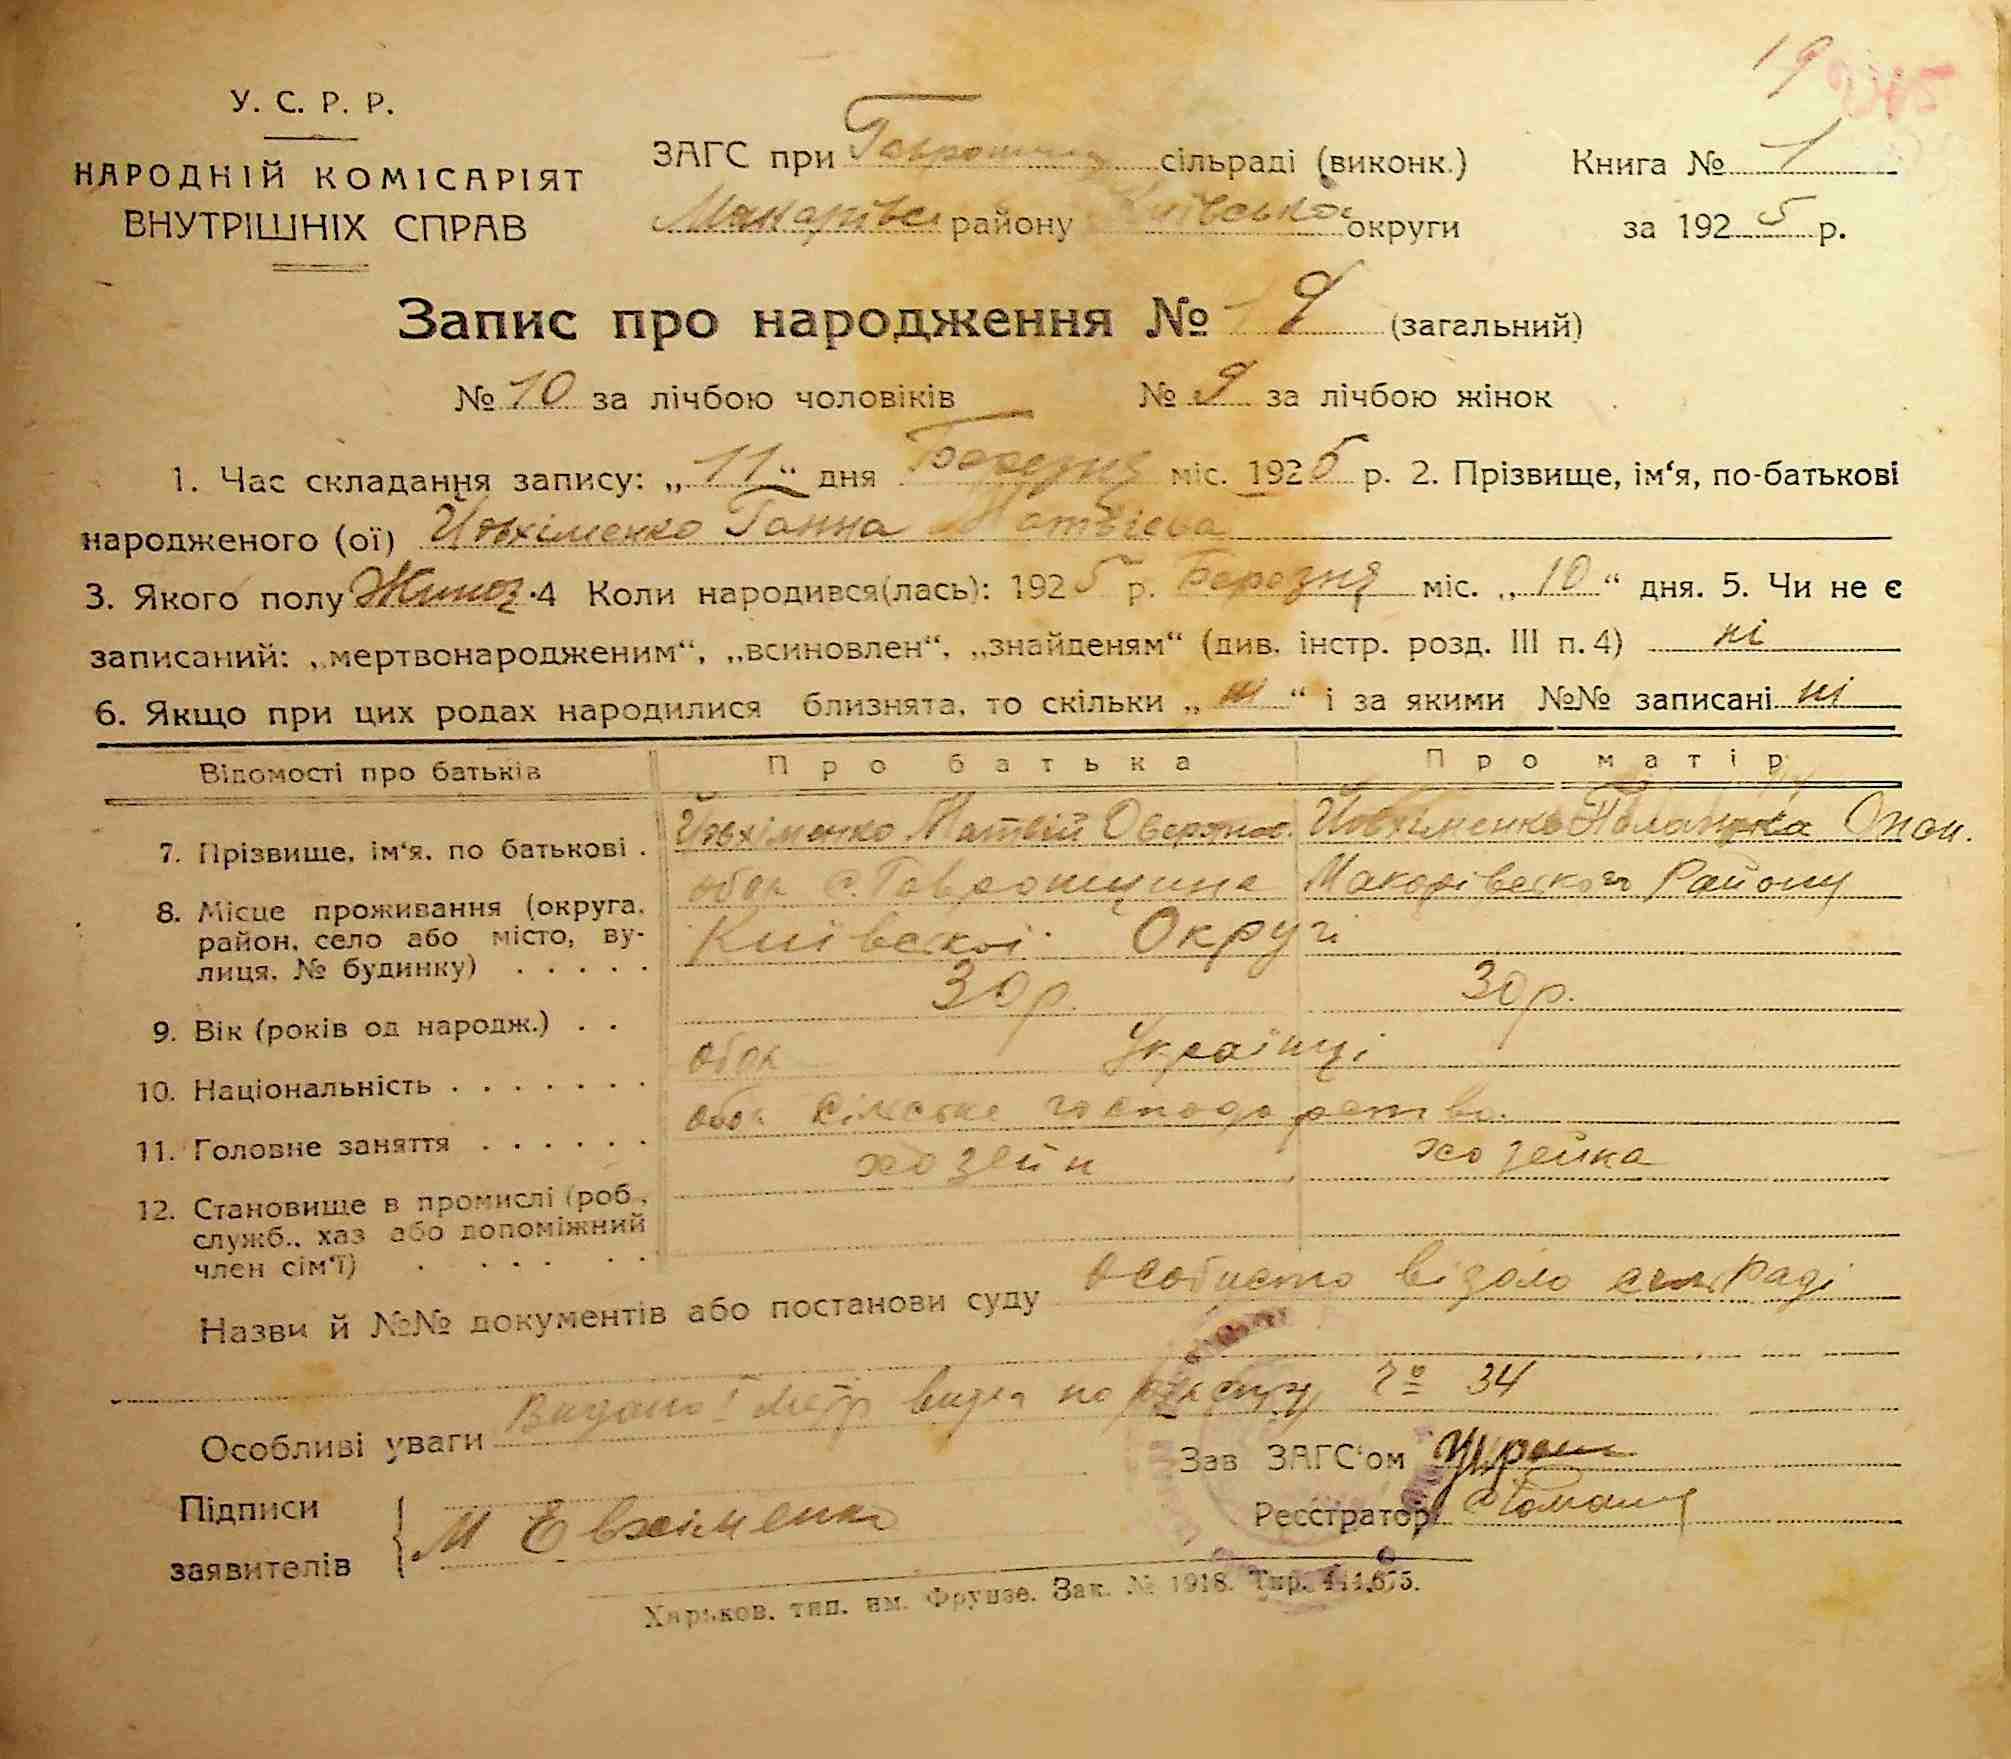 19
У. С. Р. Р.
НАРОДНІЙ КОМІСАРІЯТ
ВНУТРІШНІХ СПРАВ
ЗАГС при сільраді (виконк.)
Макарівс району Київсько округи
Книга № 1
за 1925 р.
Запис про народження № 19 (загальний)
№ 10 за лічбою чоловіків № 9 за лічбою жінок
1. Час складання запису: „11“ дня Березня міс. 1925 р. 2. Прізвище, ім‘я, по-батькові
народженого (ої) Йовхіменко Ганна Матвієва
3. Якого полу 4 Коли народився(лась): 1925 р. Березня міс. „10“ дня. 5. Чи не є
записаний: „мертвонародженим“, „всиновлен“, „знайденям“ (див. інстр. розд. III п. 4) ні
6. Якщо при цих родах народилися близнята, то скільки „ні“ і за якими №№ записані ні
Відомості про батьків Про батька Про матір
7. Прізвище, ім‘я, по батькові . Йовхіменко Матвій Йовхіменко
8. Місце проживання (округа, район, село або місто, вулиця, № будинку) . . . . .
с. Гавронщина Макарівського Району
Київської Округи
9. Вік (років од народж.) . . 30 р. 30 р.
10. Національність . . . . . . . Українці
11. Головне заняття . . . . . . сільське господарство
12. Становище в промислі (роб., служб., хаз або допоміжний член сім‘ї) . . . . . .
хозейн хозейка
Назви й №№ документів або постанови суду особисто сільраді
Особливі уваги Видано № 34
Зав ЗАГС‘ом
Підписи заявителів М Евхіменко
Реєстратор
Харьков. тип. им. Фрунзе. Зак. № 1918. Тир. 444.675.